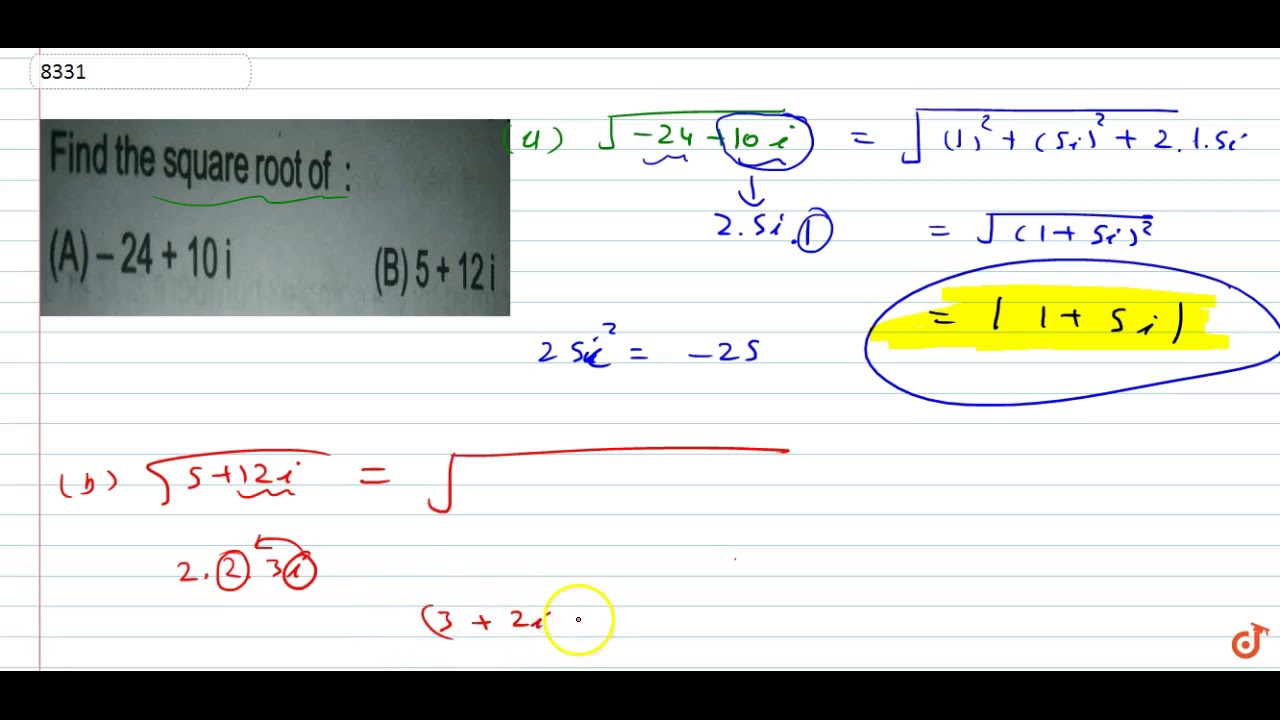 8331
Find the square root of :
(A) – 24 + 10 i
(B) 5 + 12 i
(a) √-24 + 10 i = √(1)² + (5i)² + 2.1.5i
2.5i.1
= √(1 + 5i)²
= | 1 + 5i |
25i² = -25
(b) √5+12i = √
2.2.3i
(3 + 2i